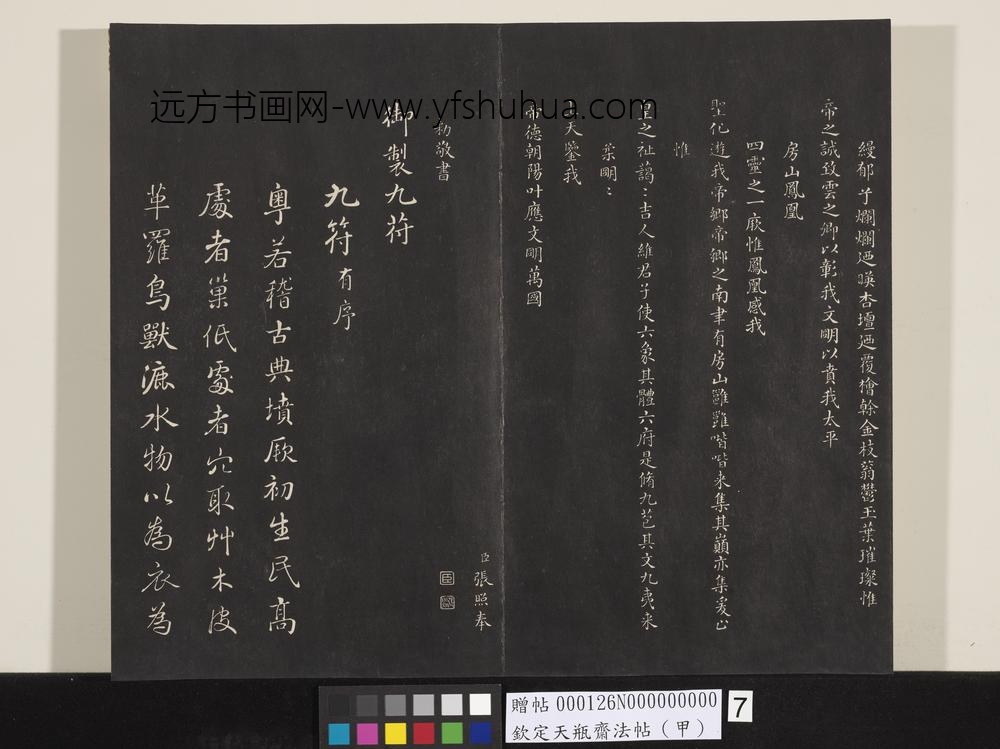 縵郁芓爛爛迺暎杏壇迺覆檜榦金枝蓊鬱玉葉璀璨惟
帝之誠致雲之卿以彰我文明以賁我太平
房山鳳凰
四靈之一厥惟鳳凰感我
聖化遊我帝鄉帝鄉之南聿有房山雝雝喈喈來集其巔亦集爰止
惟
皇之祉藹〻吉人維君子使六象其體六府是脩九苞其文九夷來
葉明〻
上天鑒我
帝德朝陽叶應文明萬國
臣張照奉
勅敬書
御製九符
九符有序
粵若稽古典墳厥初生民高
處者巢低處者穴取艸木皮
革羅鳥獸漉水物以為衣為
远方书画网-www.yfshuhua.com
贈帖 000126N000000000
欽定天瓶齋法帖（甲）
7